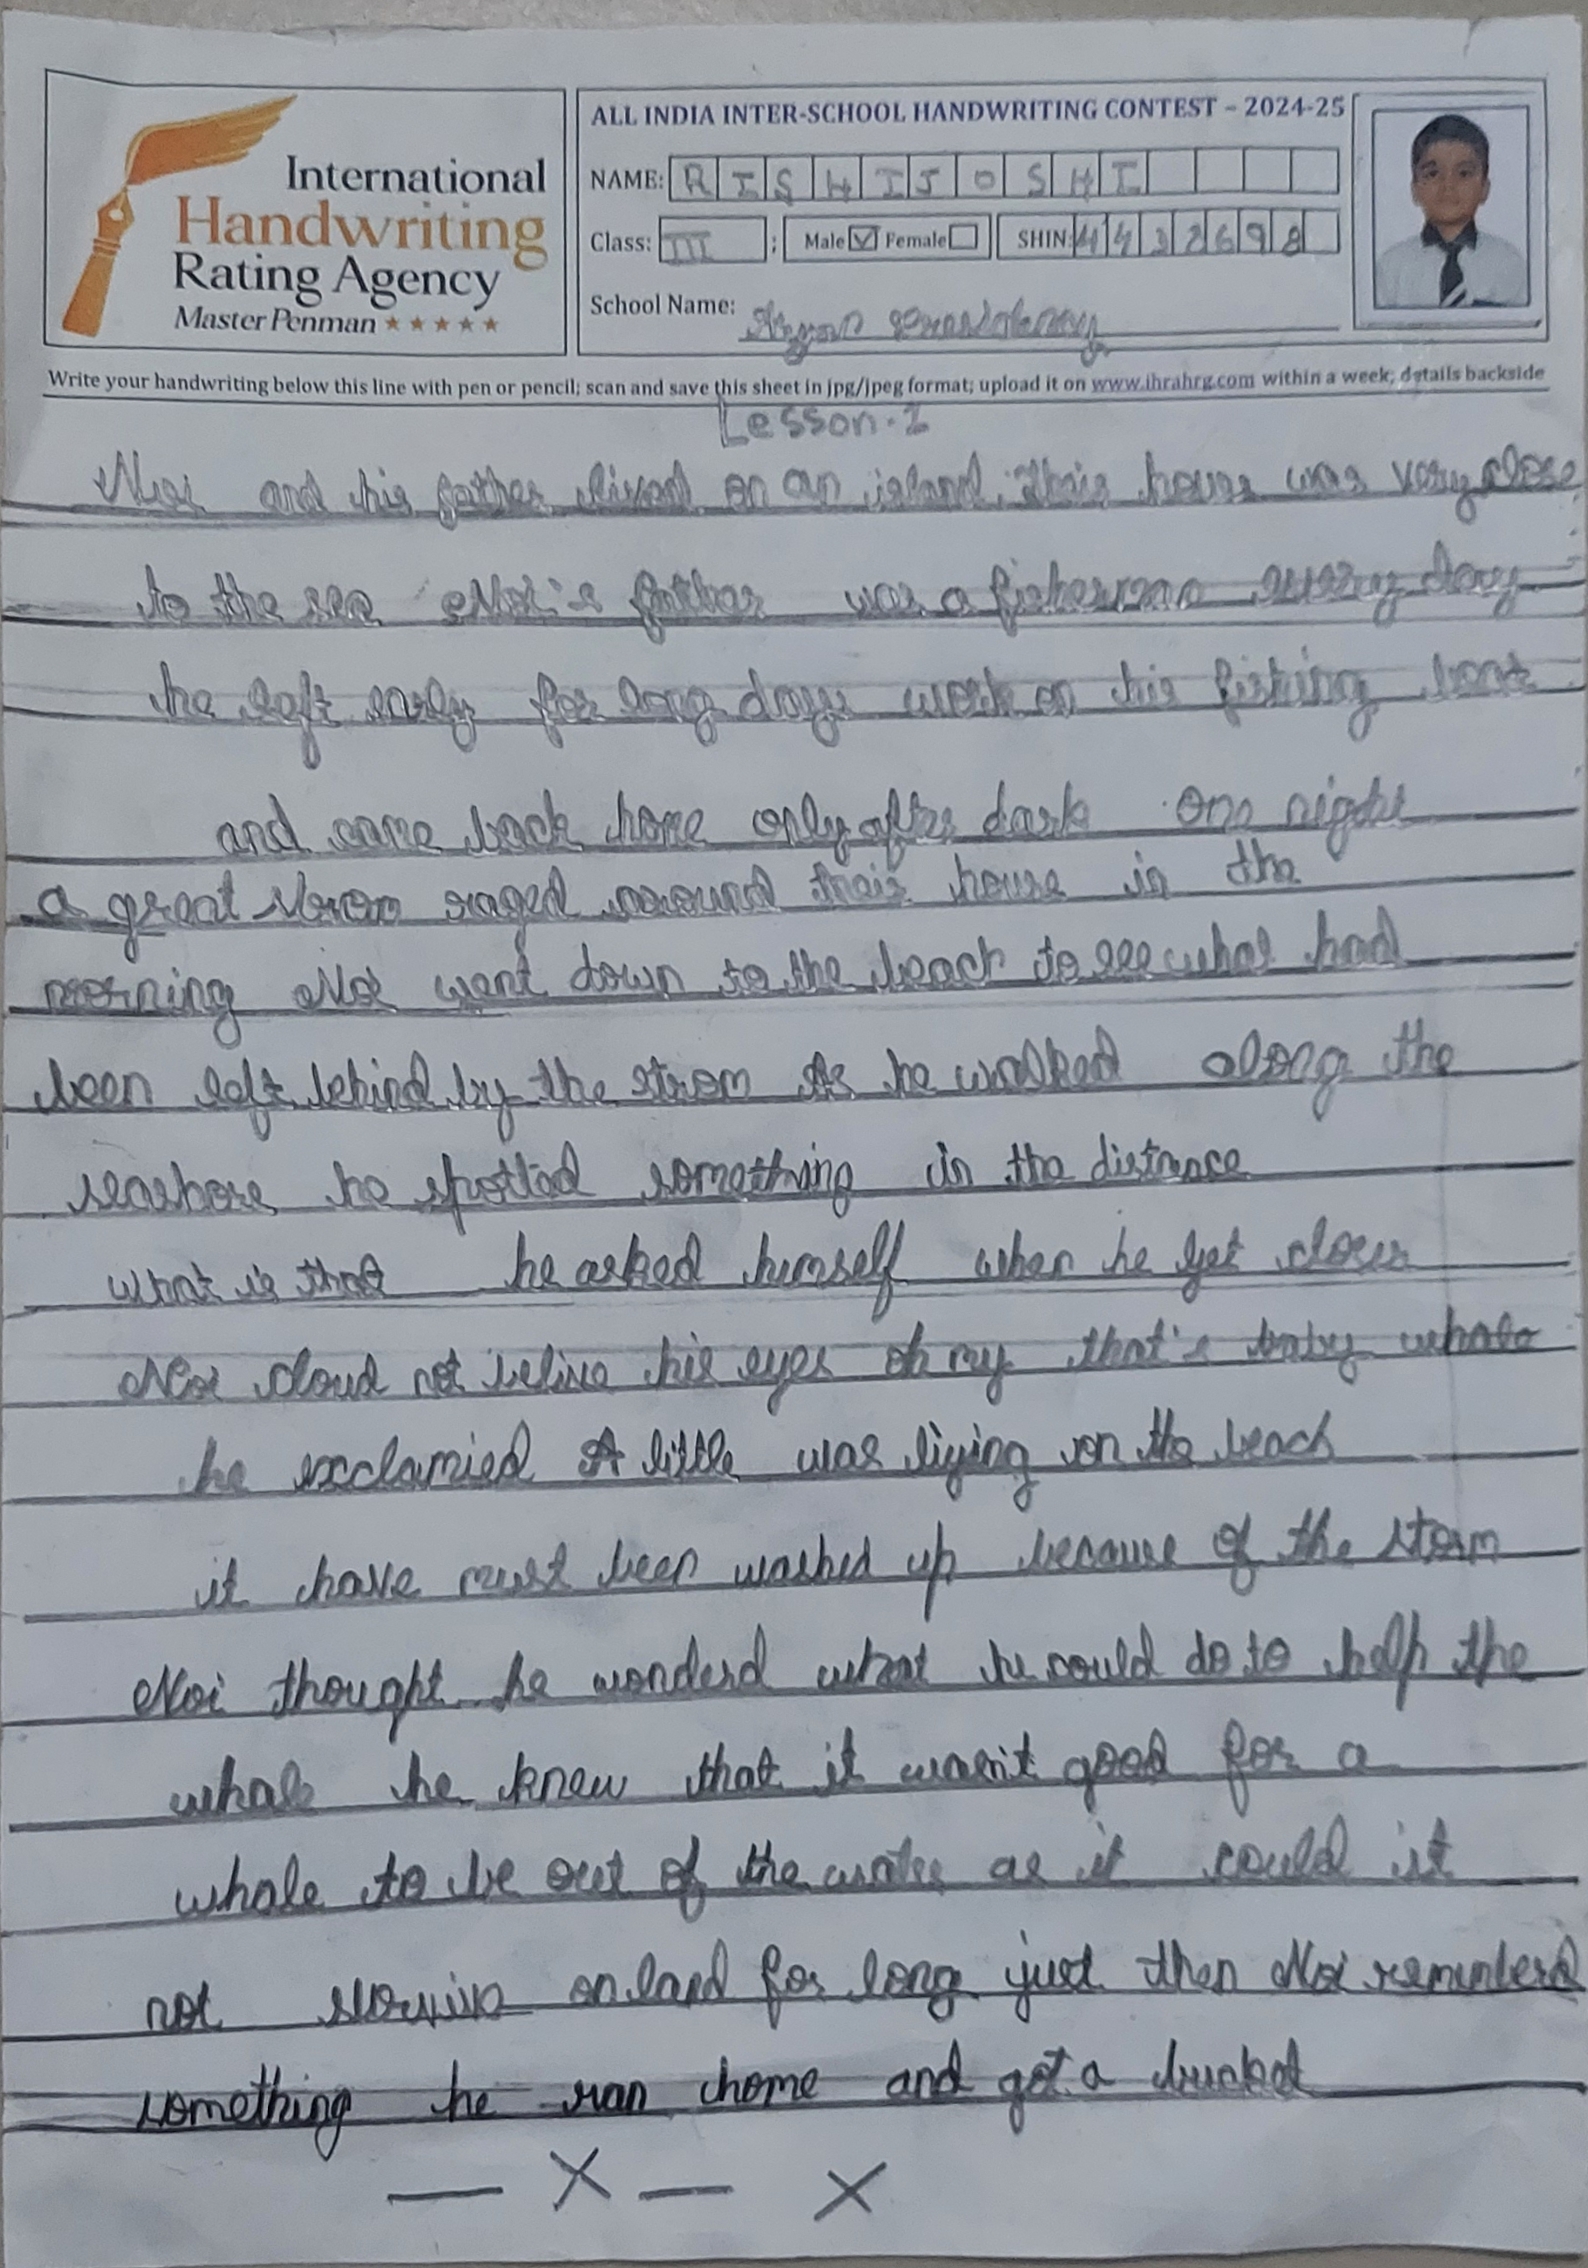 International
Handwriting
Rating Agency
Master Penman
ALL INDIA INTER-SCHOOL HANDWRITING CONTEST - 2024-25
NAME: RISHI JOSHI
Class: III ; Male Female SHIN: 4432698
School Name:
Write your handwriting below this line with pen or pencil; scan and save this sheet in jpg/jpeg format; upload it on www.ihrahrg.com within a week; details backside
Lesson-2
Noi and his father lived on an island. Their house was very close
to the sea Noi's father was a fisherman every day
he left early for long days work on his fishing boat
and came back home only after dark One night
a great storm raged around their house in the
morning Noi went down to the beach to see what had
been left behind by the strom As he walked along the
seashore he spotted something in the distance
what is that he asked himself when he get closer
Noi cloud not belive his eyes oh my that's baby whale
he exclamied A little was liying on the beach
it have must been washed up because of the storm
Noi thought he wonderd what he could do to help the
whale he knew that it wasn't good for a
whale to be out of the water as it could it
not on land for long just then Noi rememberd
something he ran home and got a bucked
— X — X